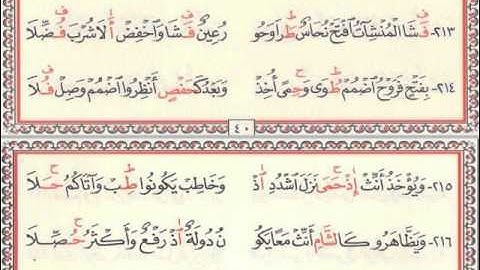 ٢١٣- فَشَا الْمُنْشِئَاتُ افْتَحْ نُحَاسٌ طَرَا وَحُو رُعِينٌ فَشَا وَاخْفِضْ أَلَا شُرْبَ فُصِّلَا
٢١٤- بِفَتْحٍ فَرَوْحُ اضْمُمْ طُوًى وَحِمًى أُخِذْ وَبَعْدُ كَحَفْصٍ أَنْظِرُوا اضْمُمْ وَصِلْ فُلَا
٤٠
٢١٥- وَيُؤْخَذُ أَنِّثْ إِذْ حَمَى نَزَلَ اشْدُدِ اذْ وَخَاطِبْ يَكُونُوا طِبْ وَآتَاكُمُ حَلَا
٢١٦- وَيَظَّاهَرُو كَالشَّامِ أَنِّثْ مَعًا يَكُو نُ دُولَةٌ اذْ رَفْعٌ وَأَكْثَرُ حُصِّلَا